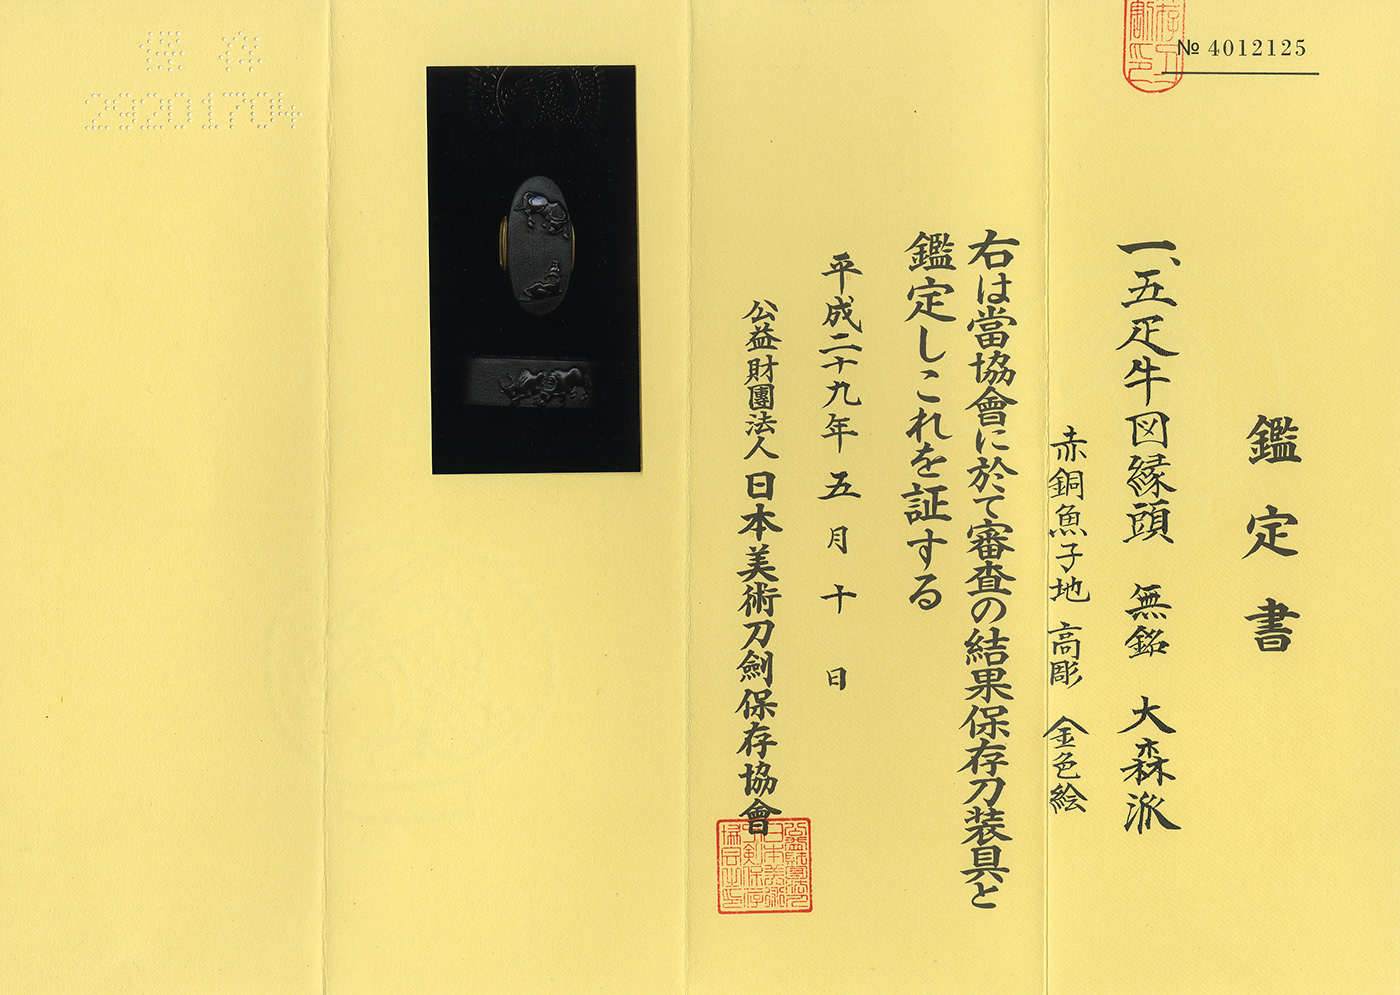 № 4012125
鑑定書
一、五疋牛図縁頭 無銘 大森派
赤銅魚子地 高彫 金色絵
右は當協會に於て審査の結果保存刀装具と
鑑定しこれを証する
平成二十九年五月十日
公益財團法人 日本美術刀劍保存協會
保存
29201704